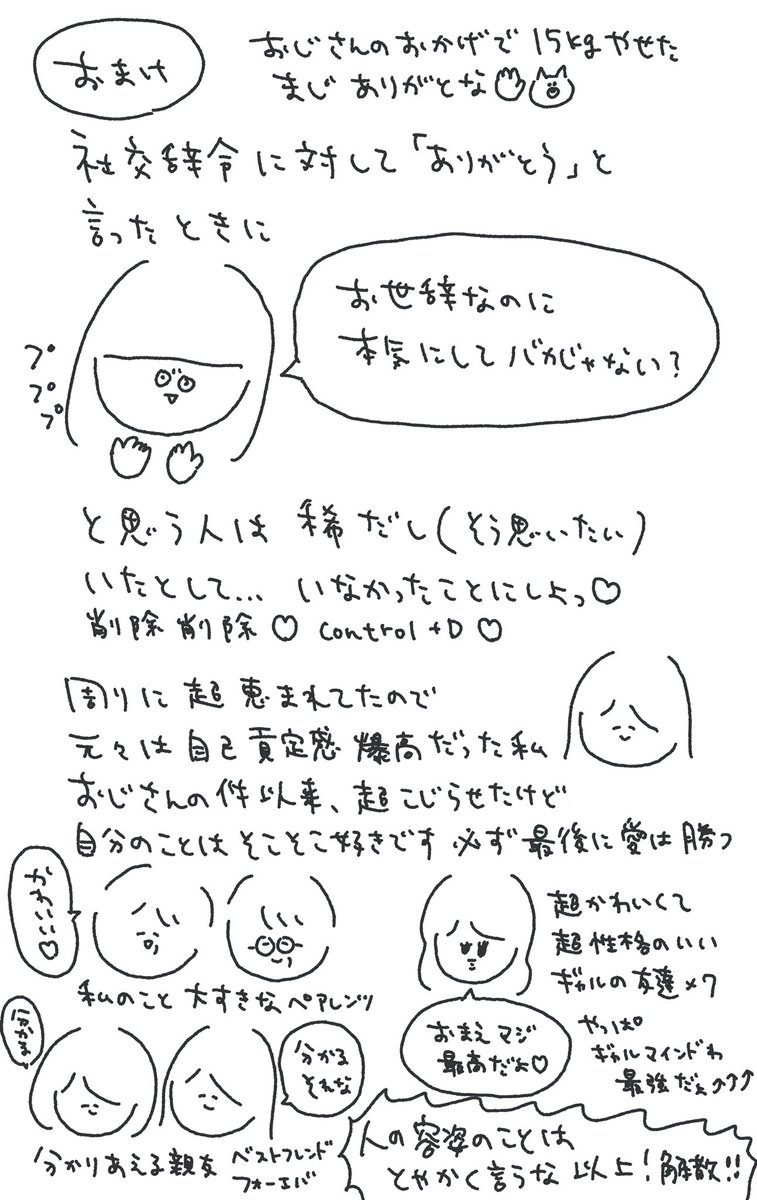 おまけ
おじさんのおかげで 15kgやせた
まじ ありがとな
社交辞令に対して「ありがとう」と
言ったときに
お世辞なのに
本気にして バカじゃない？
プ
プ
プ
と思う人は 稀だし(そう思いたい)
いたとして… いなかったことにしよっ♡
削除 削除 ♡ control +D ♡
周りに超恵まれてたので
元々は自己肯定感爆高だった私
おじさんの件以来、超こじらせたけど
自分のことはそこそこ好きです 必ず最後に愛は勝つ
かわいい♡
私のこと大すきなペアレンツ
超かわいくて
超性格のいい
ギャルの友達×7
おまえマジ
最高だよ♡
やっぱ
ギャルマインドわ
最強だょ↑↑↑
分かる
それな
分かりあえる親友 ベストフレンド
フォーエバ
人の容姿のことは
とやかく言うな 以上！解散!!